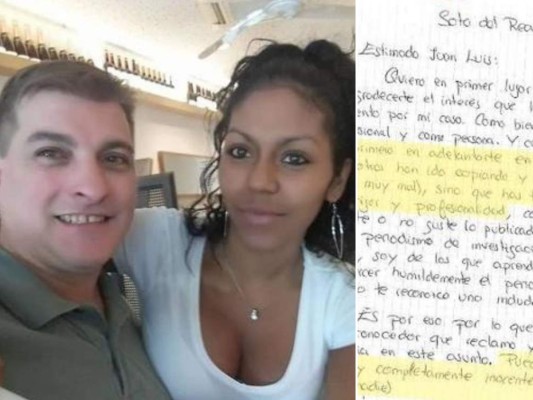 Soto del Rea
Estimado Joan Luis:
Quiero en primer lugar
gradecerte el interés que
ento por mi caso. Como bien
sional y como persona. Y
rimero en adelantarte en
otros han ido copiando y
muy mal), sino que has
y profesionalidad, c
e o no guste lo publicad
periodismo de investigació
, soy de los que aprend
cer humildemente el per
o te reconozco una indud
ES por eso por lo que
onocedor que reclamo y
en este asunto. Pue
y completamente inocente
nadie)